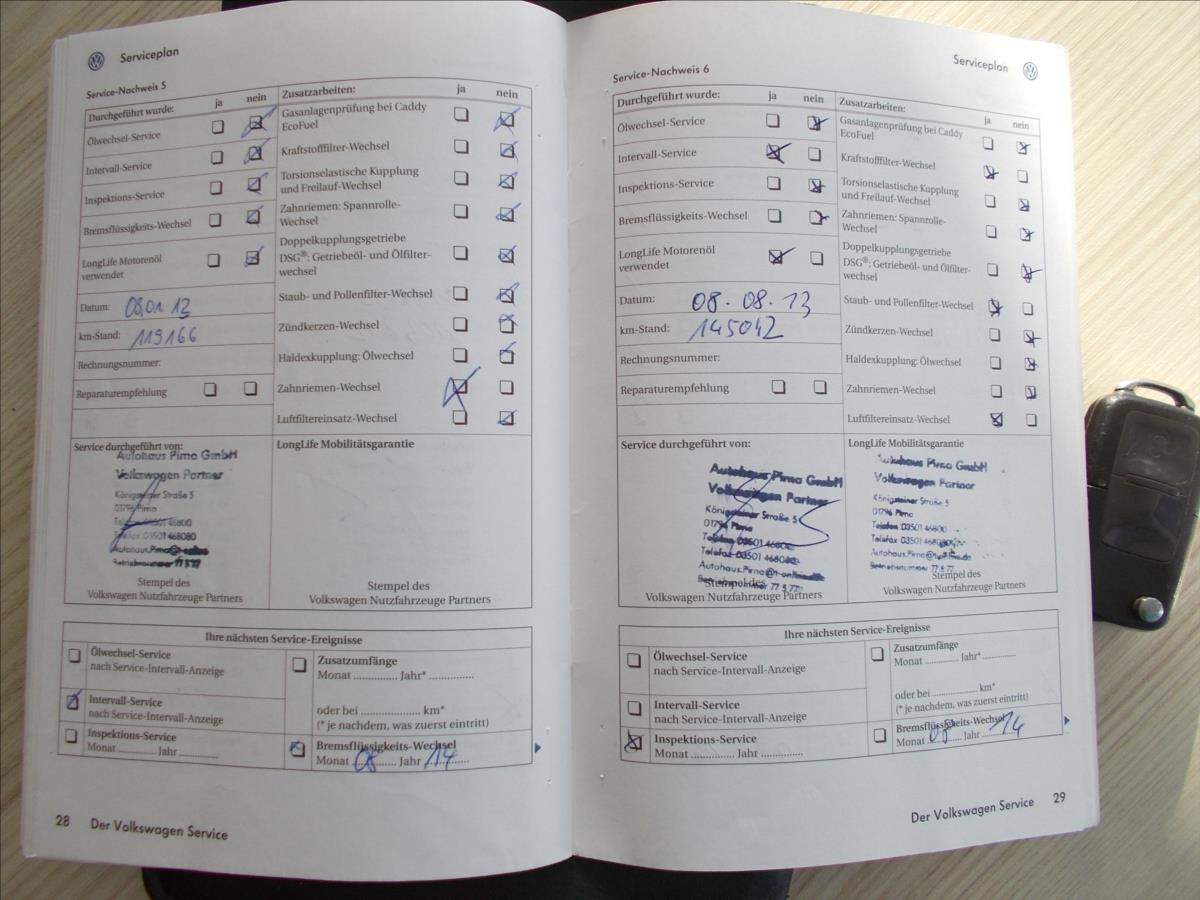 Serviceplan
Service-Nachweis 5
Durchgeführt wurde: ja nein
Ölwechsel-Service
Intervall-Service
Inspektions-Service
Bremsflüssigkeits-Wechsel
LongLife Motorenöl
verwendet
Datum: 08.01.13
km-Stand: 119166
Rechnungsnummer:
Reparaturempfehlung
Zusatzarbeiten: ja nein
Gasanlagenprüfung bei Caddy
EcoFuel
Kraftstofffilter-Wechsel
Torsionselastische Kupplung
und Freilauf-Wechsel
Zahnriemen: Spannrolle-
Wechsel
Doppelkupplungsgetriebe
DSG®: Getriebeöl- und Ölfilter-
wechsel
Staub- und Pollenfilter-Wechsel
Zündkerzen-Wechsel
Haldexkupplung: Ölwechsel
Zahnriemen-Wechsel
Luftfiltereinsatz-Wechsel
Service durchgeführt von:
Autohaus Pirna GmbH
Volkswagen Partner
Königsteiner Straße 5
01796 Pirna
Telefon 03501 46800
Telefax 03501 468080
Stempel des
Volkswagen Nutzfahrzeuge Partners
LongLife Mobilitätsgarantie
Stempel des
Volkswagen Nutzfahrzeuge Partners
Ihre nächsten Service-Ereignisse
Ölwechsel-Service
nach Service-Intervall-Anzeige
Intervall-Service
nach Service-Intervall-Anzeige
Inspektions-Service
Monat ............. Jahr .............
Zusatzumfänge
Monat ............. Jahr* .............
oder bei .................. km*
(* je nachdem, was zuerst eintritt)
Bremsflüssigkeits-Wechsel
Monat 08 Jahr 14
28 Der Volkswagen Service
Serviceplan
Service-Nachweis 6
Durchgeführt wurde: ja nein
Ölwechsel-Service
Intervall-Service
Inspektions-Service
Bremsflüssigkeits-Wechsel
LongLife Motorenöl
verwendet
Datum: 08.08.13
km-Stand: 145042
Rechnungsnummer:
Reparaturempfehlung
Zusatzarbeiten: ja nein
Gasanlagenprüfung bei Caddy
EcoFuel
Kraftstofffilter-Wechsel
Torsionselastische Kupplung
und Freilauf-Wechsel
Zahnriemen: Spannrolle-
Wechsel
Doppelkupplungsgetriebe
DSG®: Getriebeöl- und Ölfilter-
wechsel
Staub- und Pollenfilter-Wechsel
Zündkerzen-Wechsel
Haldexkupplung: Ölwechsel
Zahnriemen-Wechsel
Luftfiltereinsatz-Wechsel
Service durchgeführt von:
Autohaus Pirna GmbH
Volkswagen Partner
Königsteiner Straße 5
01796 Pirna
Telefon 03501 46800
Telefax 03501 468080
Autohaus.Pirna@t-online.de
Betriebsnummer 77 5 77
Stempel des
Volkswagen Nutzfahrzeuge Partners
LongLife Mobilitätsgarantie
Autohaus Pirna GmbH
Volkswagen Partner
Königsteiner Straße 5
01796 Pirna
Telefon 03501 46800
Telefax 03501 468080
Autohaus.Pirna@t-online.de
Betriebsnummer 77 5 77
Stempel des
Volkswagen Nutzfahrzeuge Partners
Ihre nächsten Service-Ereignisse
Ölwechsel-Service
nach Service-Intervall-Anzeige
Intervall-Service
nach Service-Intervall-Anzeige
Inspektions-Service
Monat ............. Jahr .............
Zusatzumfänge
Monat ............. Jahr* .............
oder bei .................. km*
(* je nachdem, was zuerst eintritt)
Bremsflüssigkeits-Wechsel
Monat 08 Jahr 14
Der Volkswagen Service 29